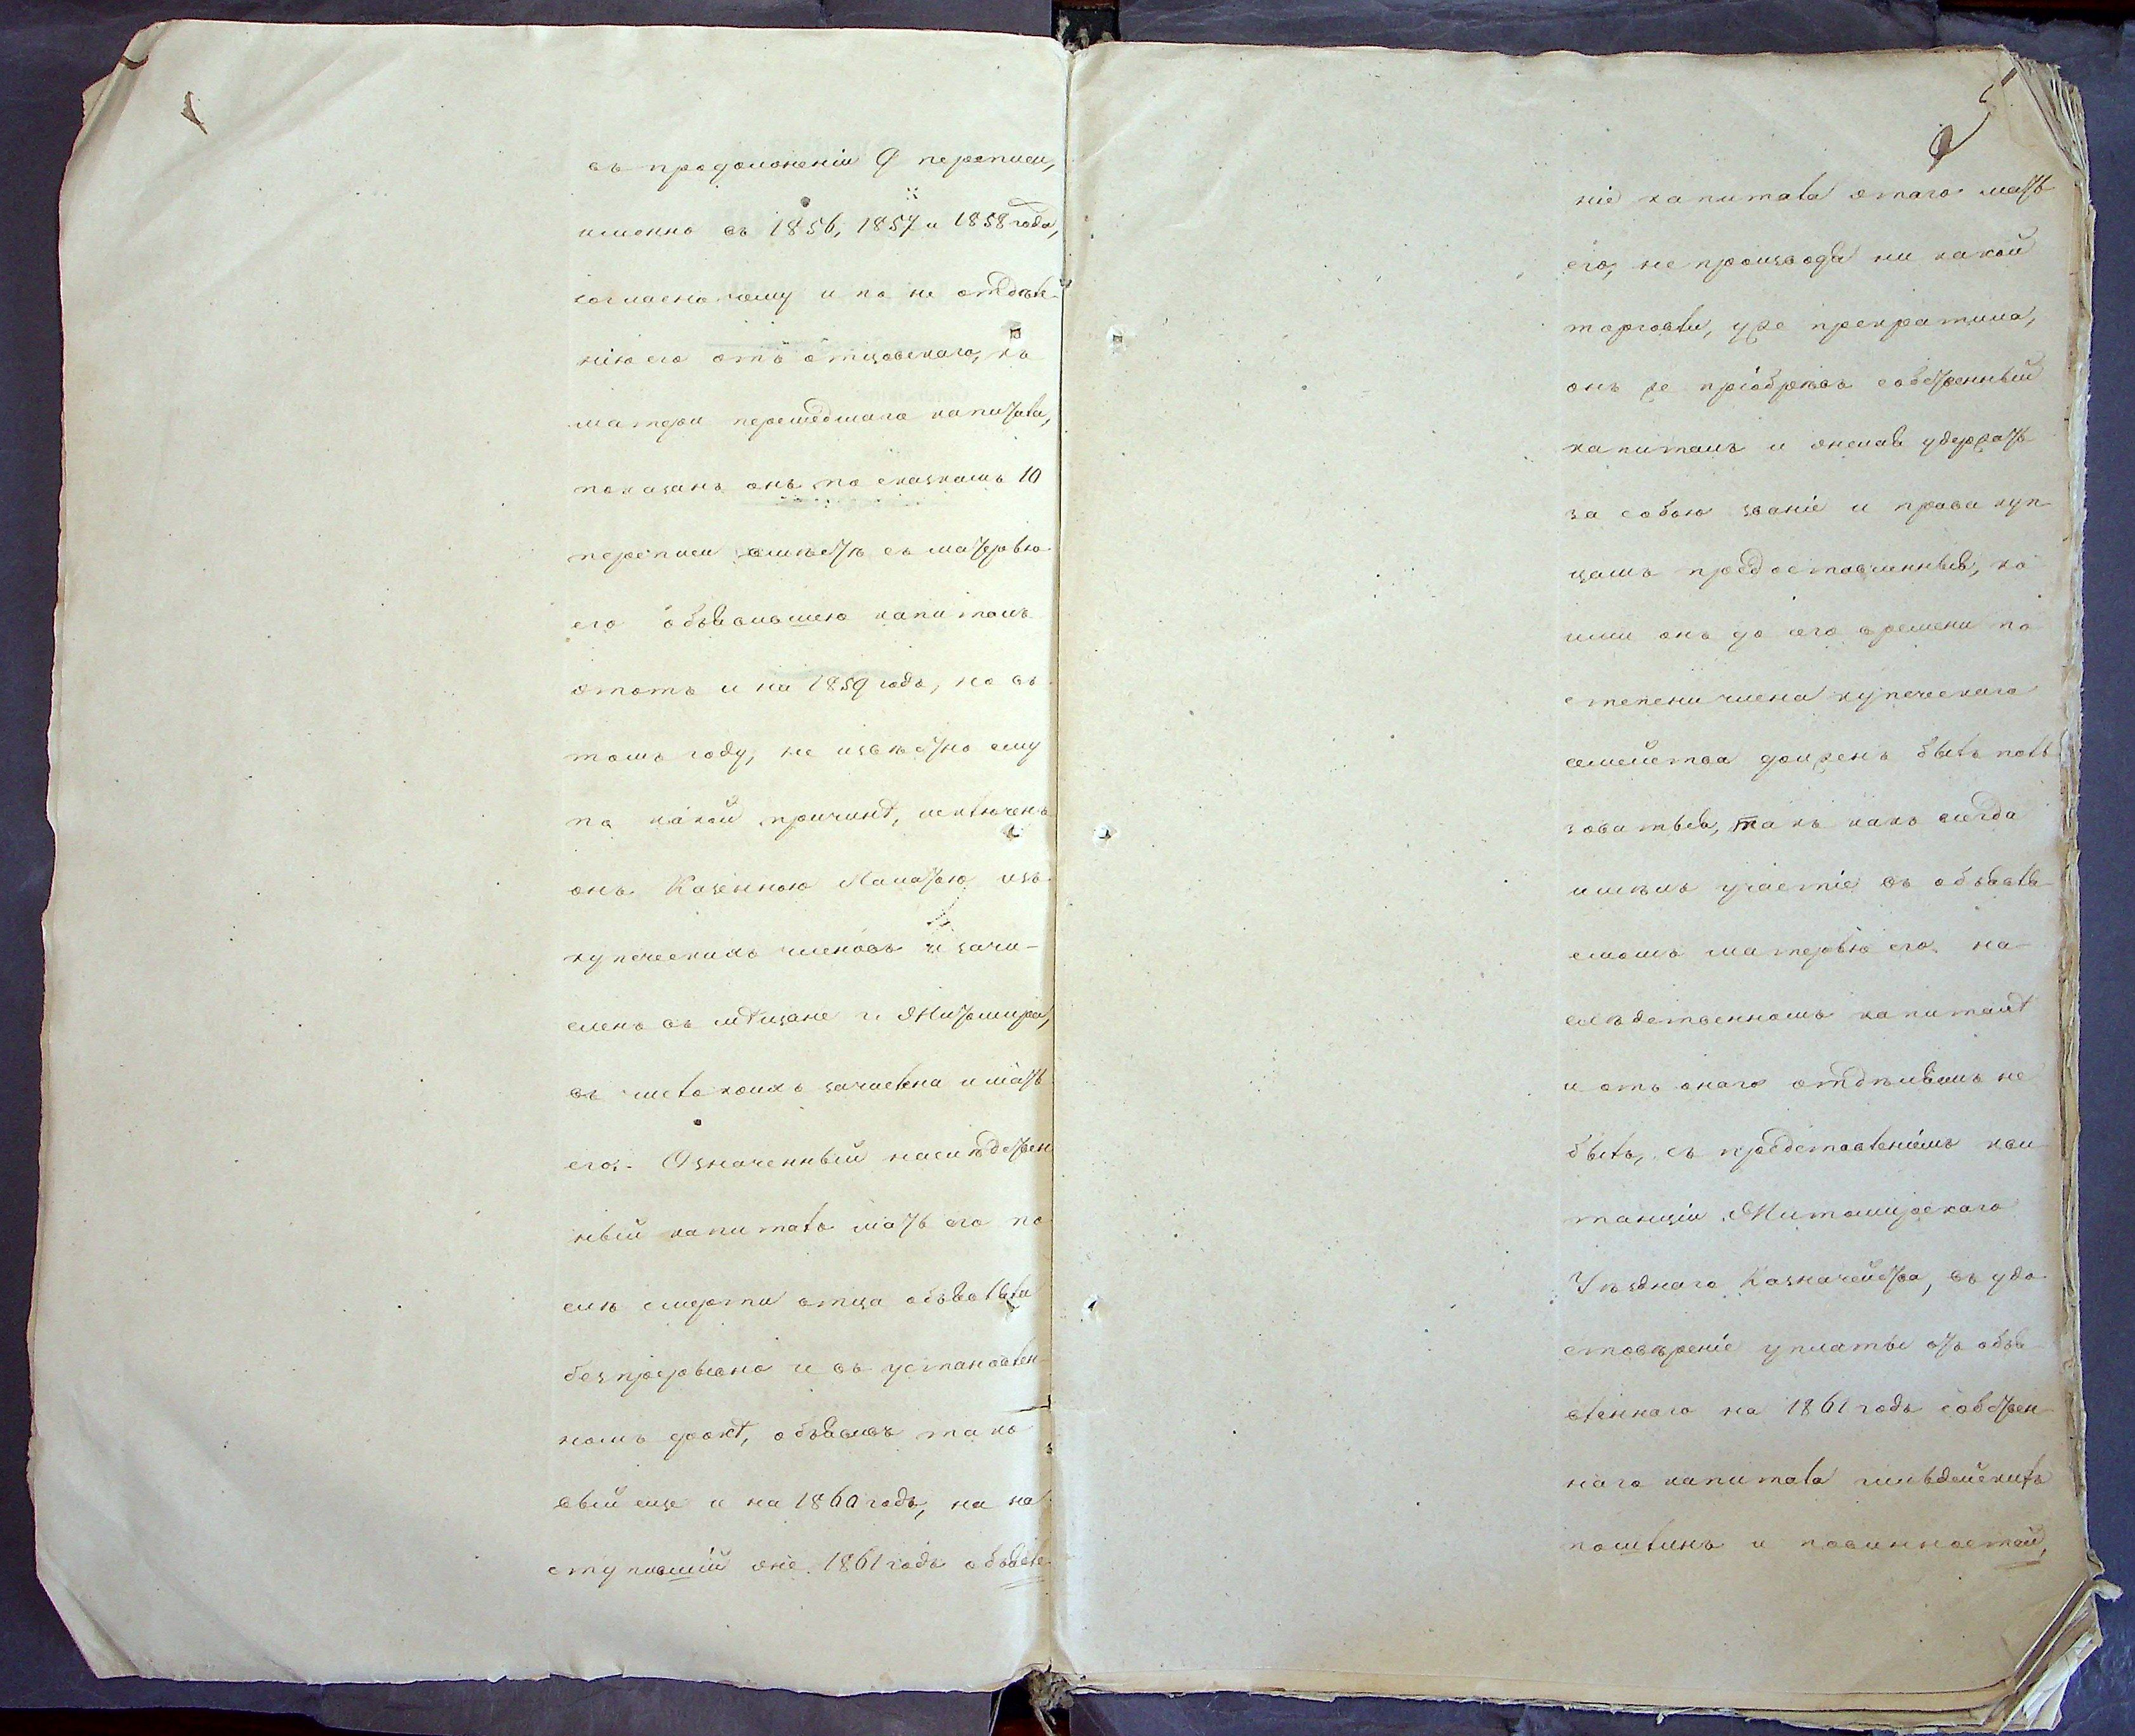 въ продолженіи 9 переписи,
именно въ 1856, 1857 и 1858 годах,
согласно чему и по не отдѣле-
нію его отъ отцовскаго, къ
матери перешедшаго капитала,
показанъ онъ по сказкамъ 10
переписи вмѣстѣ съ матерью
его объявившею капиталъ
этотъ и на 1859 годъ, но въ
томъ году, не извѣстно ему
по какой причинѣ, исключенъ
онъ Казенною Палатою изъ
купеческихъ членовъ и зачи-
сленъ въ мѣщане г. Житомира,
въ число коихъ зачислена и мать
его. Означенный наслѣдствен
ный капиталъ мать его по
слѣ смерти отца объявляла
безпрерывно и въ установлен-
номъ срокѣ, объявивъ тако
вый еще и на 1860 годъ, на на
ступившій же 1861 годъ объявле-
5
ніе капитала этаго мать
его, не производя ни какой
торговли, уже прекратила,
онъ же пріобрѣвъ собственный
капиталъ и желая удержать
за собою званіе и права куп
цамъ предоставленныя, ко
ими онъ до сего времени по
степени члена купеческаго
семейства долженъ былъ поль
зоваться, такъ какъ всегда
имѣлъ участіе въ объявля
емомъ матерью его на
слѣдственномъ капиталѣ
и отъ онаго отдѣляемъ не
былъ, съ представленіемъ кви
танціи Житомирскаго
Уѣзднаго Казначейства, въ удо
стовѣреніе уплаты отъ объя
вленнаго на 1861 годъ собствен
наго капитала гильдейскихъ
пошлинъ и повинностей,